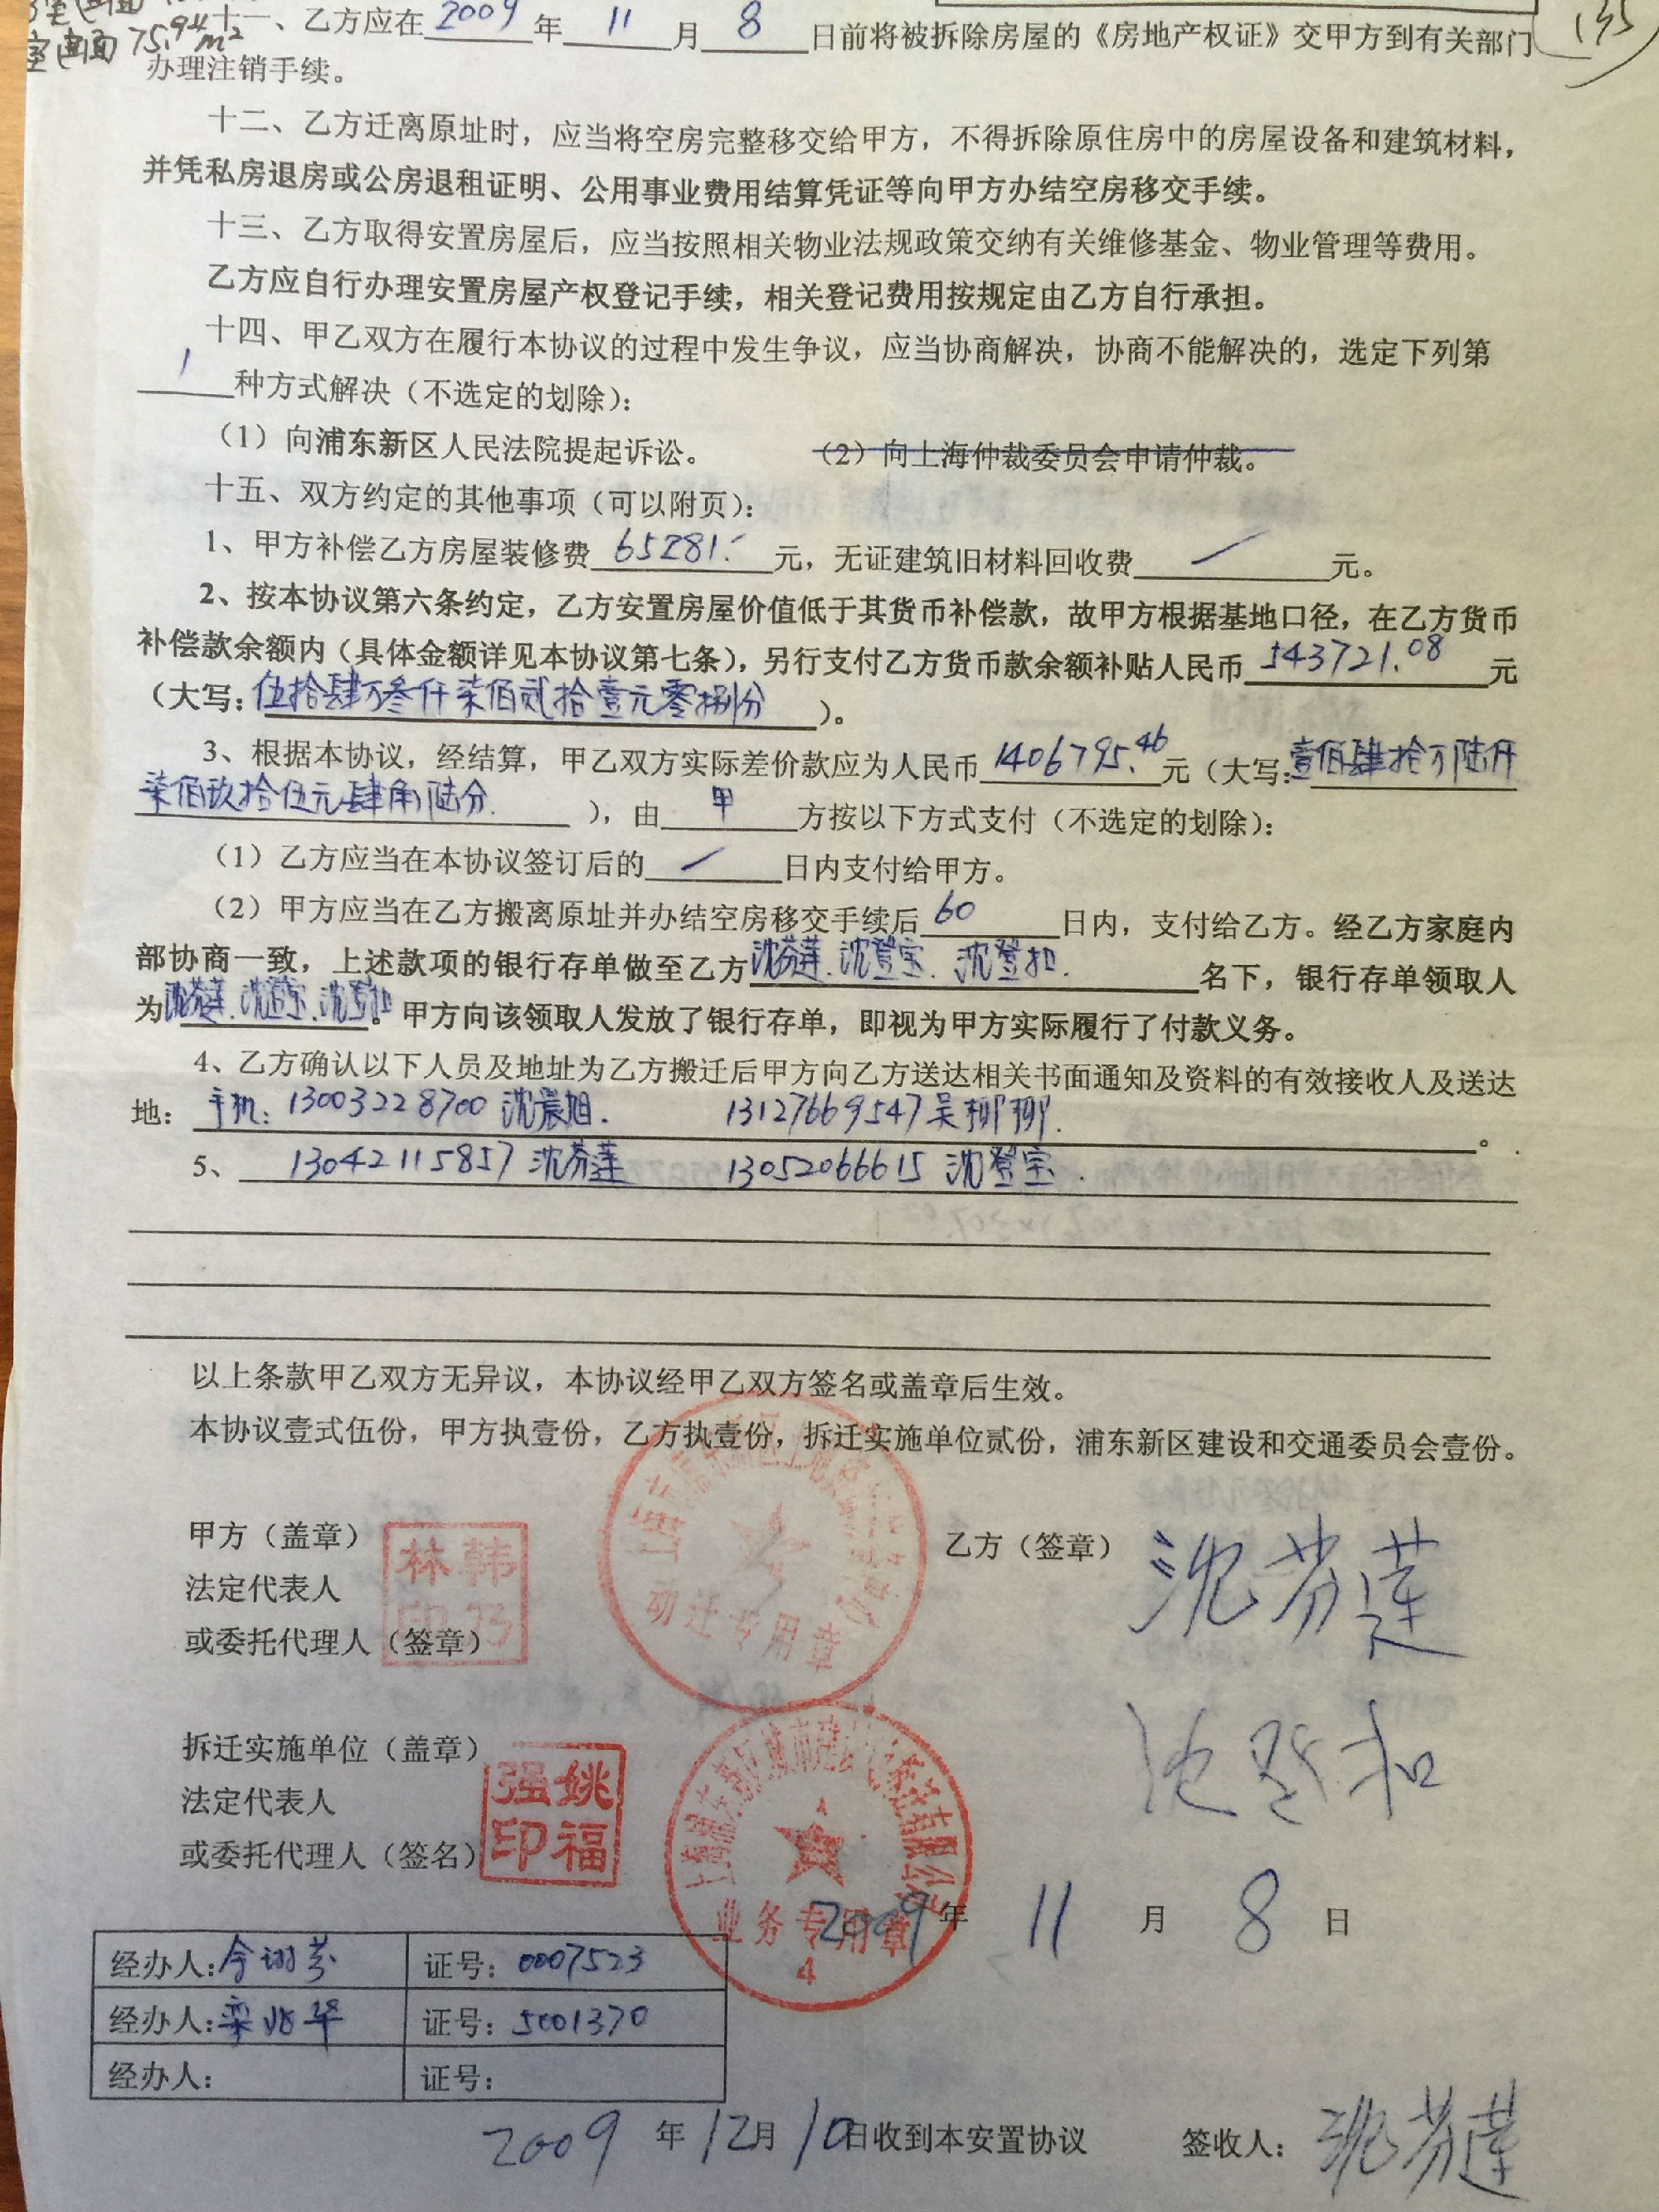 室(面
室(面 75.94m²
135
十一、乙方应在2009年11月8日前将被拆除房屋的《房地产权证》交甲方到有关部门
办理注销手续。
十二、乙方迁离原址时，应当将空房完整移交给甲方，不得拆除原住房中的房屋设备和建筑材料，
并凭私房退房或公房退租证明、公用事业费用结算凭证等向甲方办结空房移交手续。
十三、乙方取得安置房屋后，应当按照相关物业法规政策交纳有关维修基金、物业管理等费用。
乙方应自行办理安置房屋产权登记手续，相关登记费用按规定由乙方自行承担。
十四、甲乙双方在履行本协议的过程中发生争议，应当协商解决，协商不能解决的，选定下列第
1种方式解决（不选定的划除）：
（1）向浦东新区人民法院提起诉讼。 （2）向上海仲裁委员会申请仲裁。
十五、双方约定的其他事项（可以附页）：
1、甲方补偿乙方房屋装修费65281.-元，无证建筑旧材料回收费/元。
2、按本协议第六条约定，乙方安置房屋价值低于其货币补偿款，故甲方根据基地口径，在乙方货币
补偿款余额内（具体金额详见本协议第七条），另行支付乙方货币款余额补贴人民币543721.08元
（大写：伍拾肆万叁仟柒佰贰拾壹元零捌分）。
3、根据本协议，经结算，甲乙双方实际差价款应为人民币1406795.46元（大写：壹佰肆拾万陆仟
柒佰玖拾伍元肆角陆分.），由甲方按以下方式支付（不选定的划除）：
（1）乙方应当在本协议签订后的/日内支付给甲方。
（2）甲方应当在乙方搬离原址并办结空房移交手续后60日内，支付给乙方。经乙方家庭内
部协商一致，上述款项的银行存单做至乙方沈芬莲.沈登宝.沈登和.名下，银行存单领取人
为沈芬莲.沈登宝.沈登和。甲方向该领取人发放了银行存单，即视为甲方实际履行了付款义务。
4、乙方确认以下人员及地址为乙方搬迁后甲方向乙方送达相关书面通知及资料的有效接收人及送达
地：手机：13003228700 沈晨旭. 13127669547 吴柳柳.。
5、13042115857 沈芬莲 13052066615 沈登宝.
以上条款甲乙双方无异议，本协议经甲乙双方签名或盖章后生效。
本协议壹式伍份，甲方执壹份，乙方执壹份，拆迁实施单位贰份，浦东新区建设和交通委员会壹份。
甲方（盖章） 乙方（签章）沈芬莲
法定代表人
或委托代理人（签章）
韩乃林印
动迁专用章
沈登和
拆迁实施单位（盖章）
法定代表人
或委托代理人（签名）
姚福强印
业务专用章
4
2009年11月8日
经办人： 证号：0007523
经办人：栾兆华 证号：5001370
经办人： 证号：
2009年12月10日收到本安置协议 签收人：沈芬莲